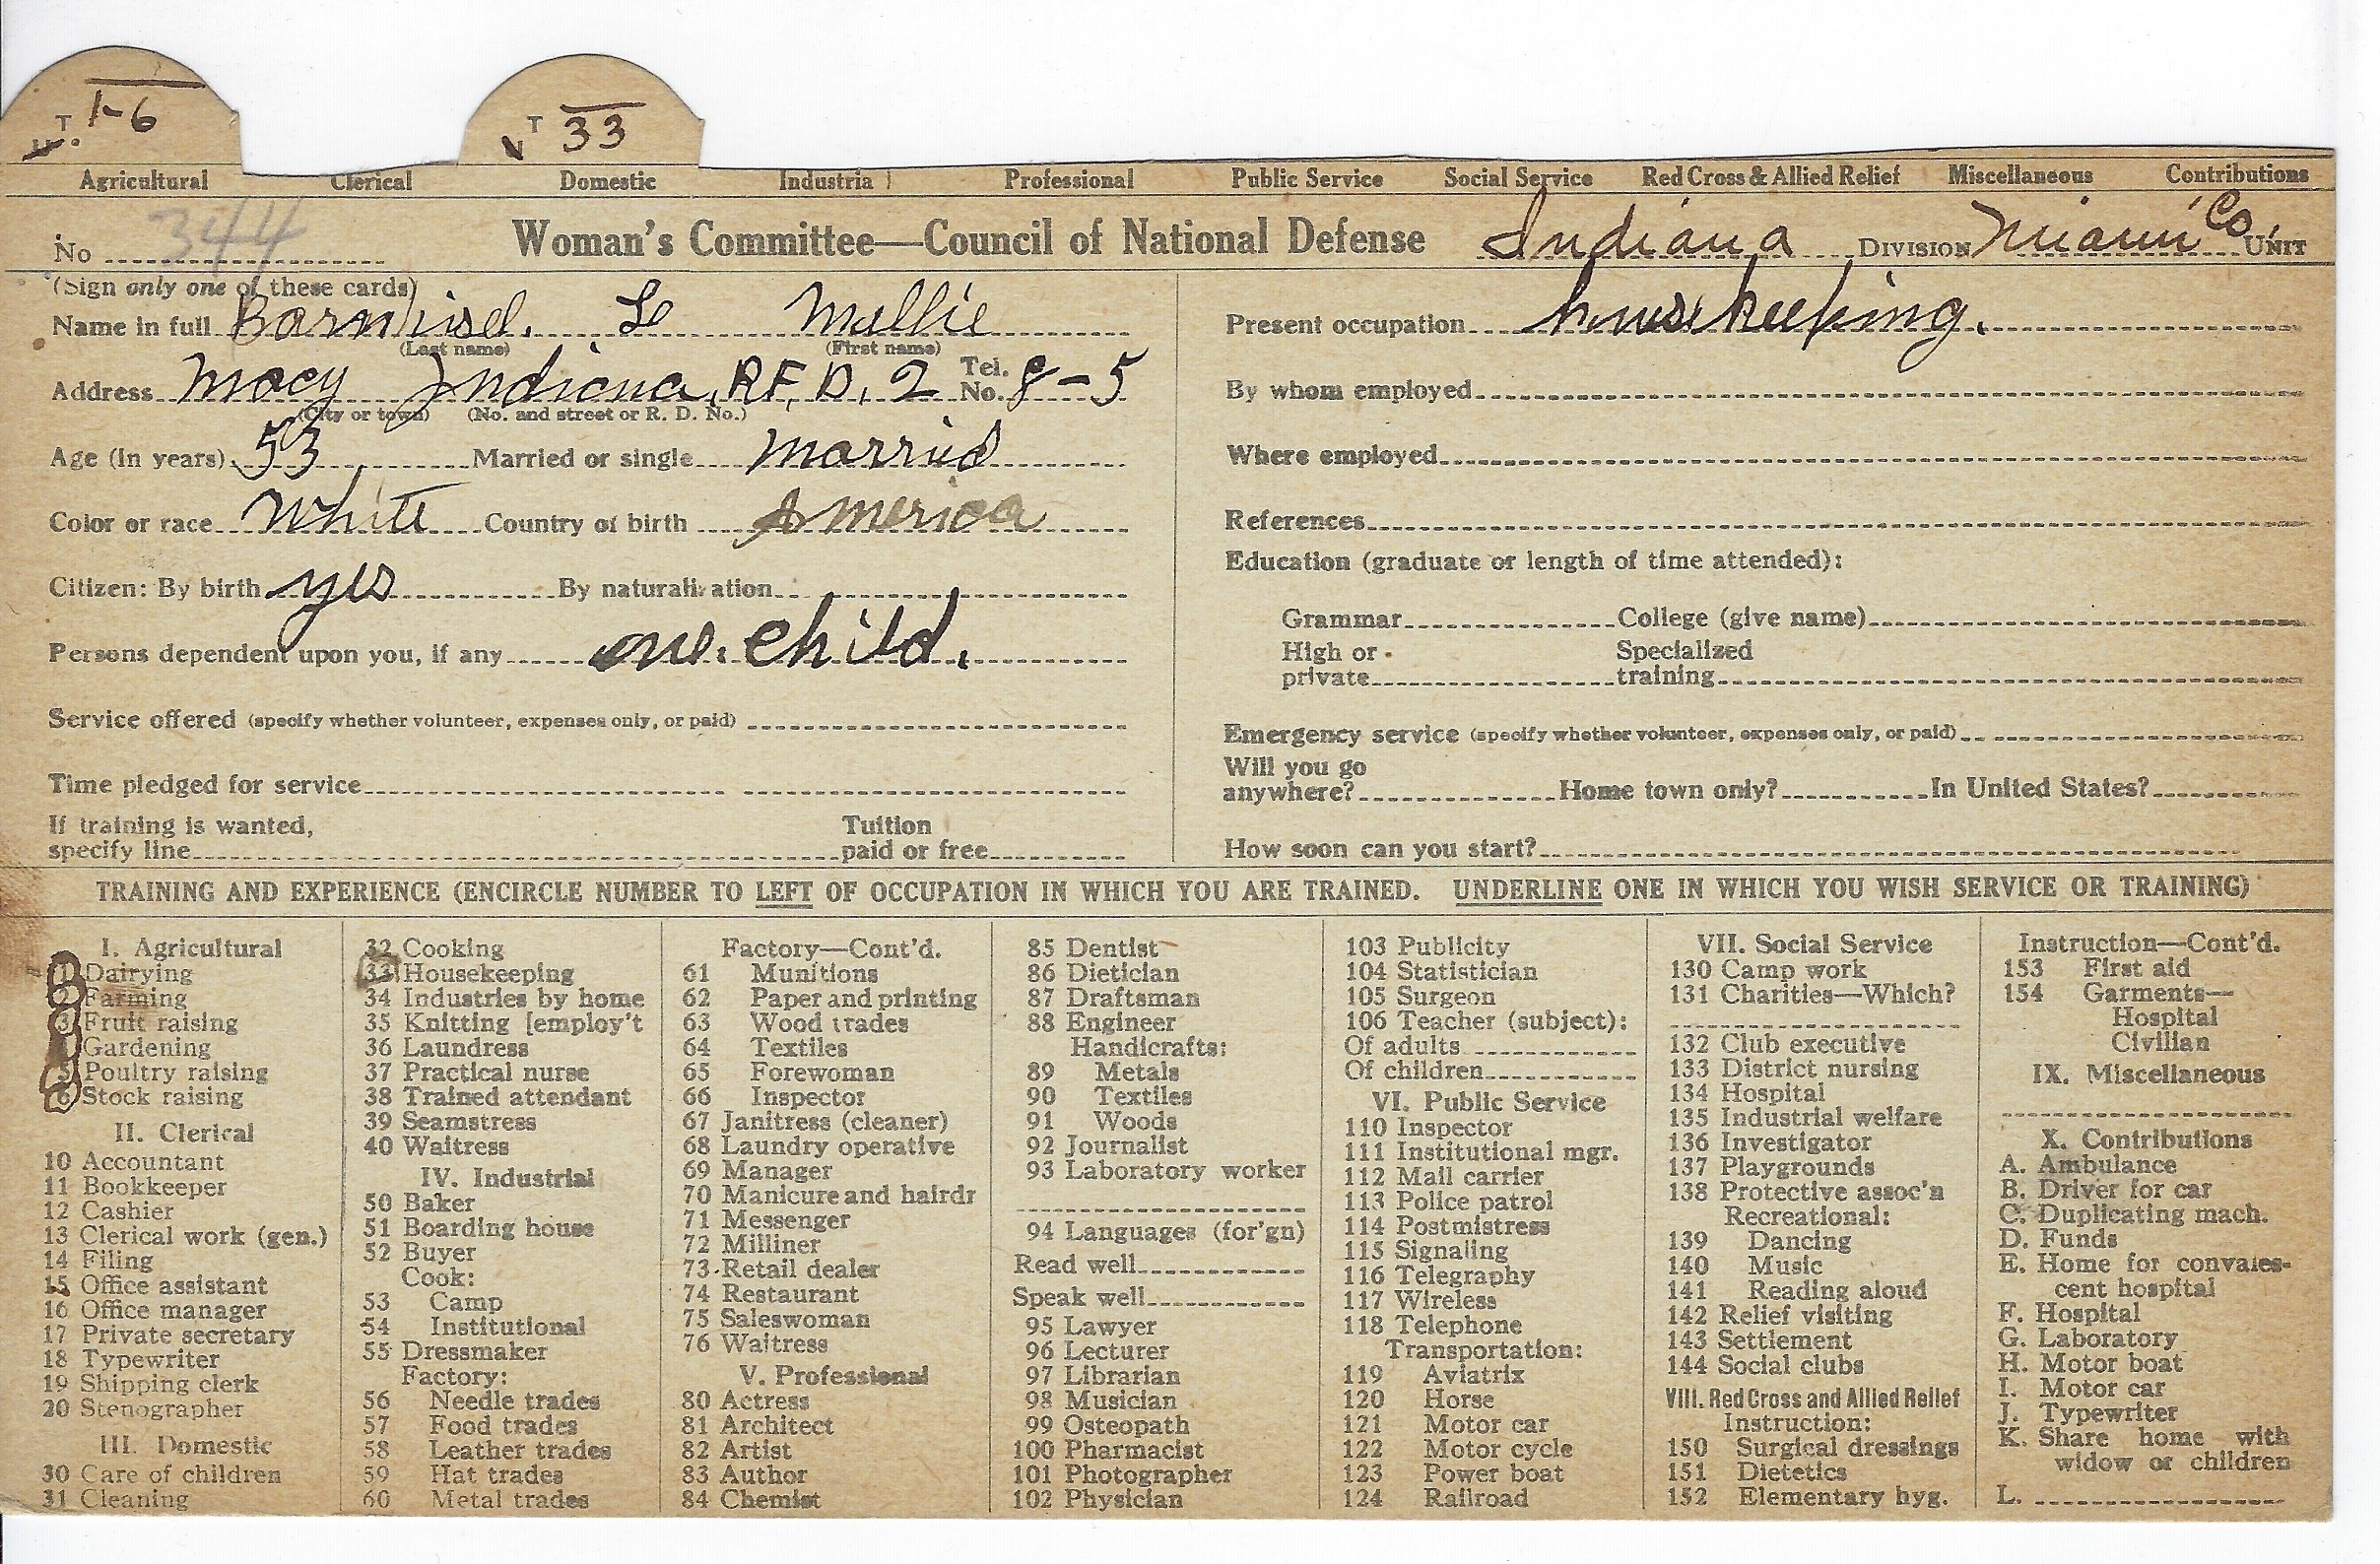 T. 1-6
T 33
Agricultural Clerical Domestic Industrial Professional Public Service Social Service Red Cross & Allied Relief Miscellaneous Contributions
No 344 Woman's Committee—Council of National Defense Indiana DIVISION Miami Co. UNIT
(Sign only one of these cards)
Name in full Mellie
(Last name) (First name)
Address Macy Indiana, R.F.D. 2 Tel. No. 8-5
(City or town) (No. and street or R. D. No.)
Age (in years) 53 Married or single married
Color or race White Country of birth America
Citizen: By birth yes By naturalization
Persons dependent upon you, if any one. child.
Service offered (specify whether volunteer, expenses only, or paid)
Time pledged for service
If training is wanted,
specify line Tuition paid or free
Present occupation housekeeping.
By whom employed
Where employed
References
Education (graduate or length of time attended):
Grammar College (give name)
High or private Specialized training
Emergency service (specify whether volunteer, expenses only, or paid)
Will you go
anywhere? Home town only? In United States?
How soon can you start?
TRAINING AND EXPERIENCE (ENCIRCLE NUMBER TO LEFT OF OCCUPATION IN WHICH YOU ARE TRAINED. UNDERLINE ONE IN WHICH YOU WISH SERVICE OR TRAINING)
I. Agricultural
1 Dairying
2 Farming
3 Fruit raising
4 Gardening
5 Poultry raising
6 Stock raising
II. Clerical
10 Accountant
11 Bookkeeper
12 Cashier
13 Clerical work (gen.)
14 Filing
15 Office assistant
16 Office manager
17 Private secretary
18 Typewriter
19 Shipping clerk
20 Stenographer
III. Domestic
30 Care of children
31 Cleaning
32 Cooking
33 Housekeeping
34 Industries by home
35 Knitting [employ't
36 Laundress
37 Practical nurse
38 Trained attendant
39 Seamstress
40 Waitress
IV. Industrial
50 Baker
51 Boarding house
52 Buyer
Cook:
53 Camp
54 Institutional
55 Dressmaker
Factory:
56 Needle trades
57 Food trades
58 Leather trades
59 Hat trades
60 Metal trades
Factory—Cont'd.
61 Munitions
62 Paper and printing
63 Wood trades
64 Textiles
65 Forewoman
66 Inspector
67 Janitress (cleaner)
68 Laundry operative
69 Manager
70 Manicure and hairdr
71 Messenger
72 Milliner
73 Retail dealer
74 Restaurant
75 Saleswoman
76 Waitress
V. Professional
80 Actress
81 Architect
82 Artist
83 Author
84 Chemist
85 Dentist
86 Dietician
87 Draftsman
88 Engineer
Handicrafts:
89 Metals
90 Textiles
91 Woods
92 Journalist
93 Laboratory worker
94 Languages (for'gn)
Read well
Speak well
95 Lawyer
96 Lecturer
97 Librarian
98 Musician
99 Osteopath
100 Pharmacist
101 Photographer
102 Physician
103 Publicity
104 Statistician
105 Surgeon
106 Teacher (subject):
Of adults
Of children
VI. Public Service
110 Inspector
111 Institutional mgr.
112 Mail carrier
113 Police patrol
114 Postmistress
115 Signaling
116 Telegraphy
117 Wireless
118 Telephone
Transportation:
119 Aviatrix
120 Horse
121 Motor car
122 Motor cycle
123 Power boat
124 Railroad
VII. Social Service
130 Camp work
131 Charities—Which?
132 Club executive
133 District nursing
134 Hospital
135 Industrial welfare
136 Investigator
137 Playgrounds
138 Protective assoc'n
Recreational:
139 Dancing
140 Music
141 Reading aloud
142 Relief visiting
143 Settlement
144 Social clubs
VIII. Red Cross and Allied Relief
Instruction:
150 Surgical dressings
151 Dietetics
152 Elementary hyg.
Instruction—Cont'd.
153 First aid
154 Garments—
Hospital
Civilian
IX. Miscellaneous
X. Contributions
A. Ambulance
B. Driver for car
C. Duplicating mach.
D. Funds
E. Home for convales-
cent hospital
F. Hospital
G. Laboratory
H. Motor boat
I. Motor car
J. Typewriter
K. Share home with
widow or children
L.